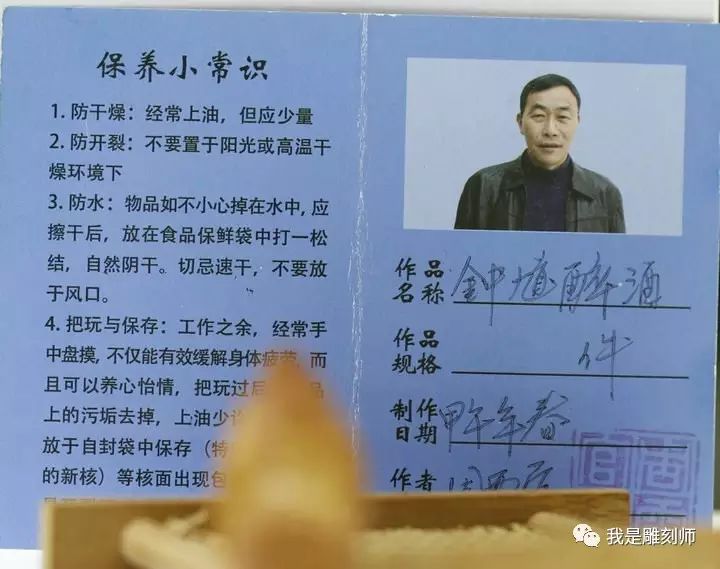 保养小常识
1. 防干燥：经常上油，但应少量
2. 防开裂：不要置于阳光或高温干
燥环境下
3. 防水：物品如不小心掉在水中，应
擦干后，放在食品保鲜袋中打一松
结，自然阴干。切忌速干，不要放
于风口。
4. 把玩与保存：工作之余，经常手
中盘摸，不仅能有效缓解身体疲劳，而
且可以养心怡情，把玩过后
上的污垢去掉，上油少许
放于自封袋中保存（特
的新核）等核面出现包
作品名称 钟馗醉酒
作品规格 件
制作日期 甲午年春
作者 周
我是雕刻师